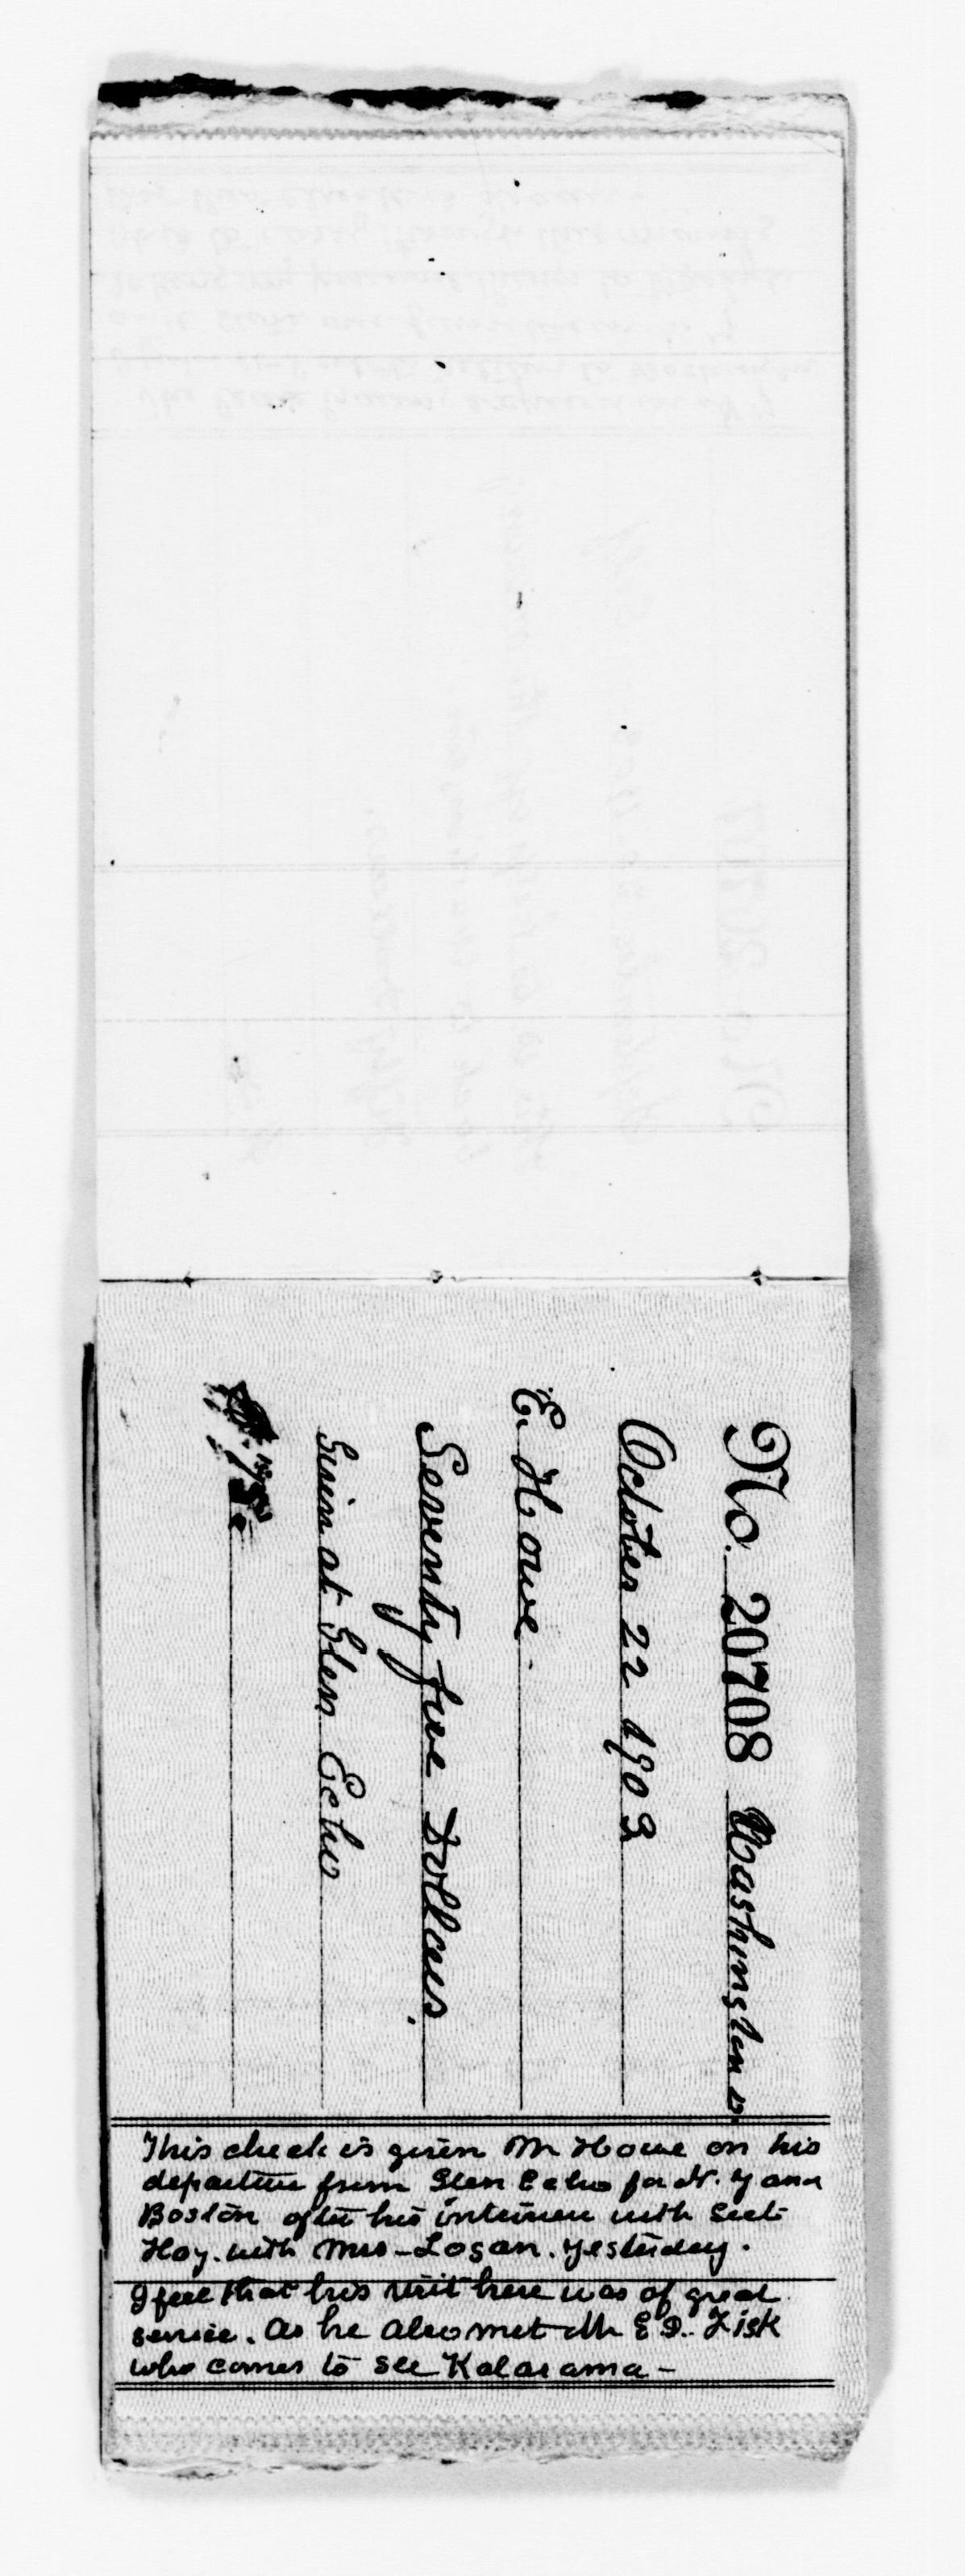 No. 20708 Washington D.
October 22 1903
E. Howe -
Seventy five Dollars.
Given at Glen Echo
75
This check is given Mr Howe on his
departure from Glen Echo for N. Y and
Boston after his interview with Sect
Hay. with Mrs - Logan. yesterday.
I feel that his visit here was of great
service. as he also met Mr E D. Fisk
who comes to see Kalarama -